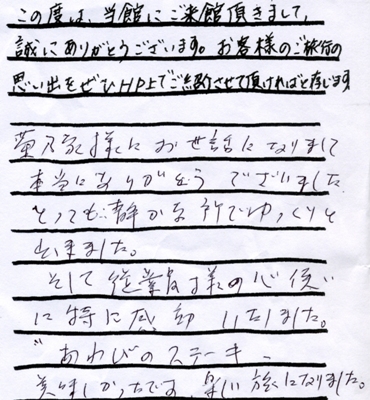 この度は、当館にご来館頂きまして、
誠にありがとうございます。お客様のご旅行の
思い出をぜひHP上でご紹介させて頂ければと存じます
様にお世話になりまして
本当にありがとう ございました
とっても静かな所でゆっくりと
出来ました。
そして従業員様の心使い
に特に感動 いたしました。
"あわびのステーキ"
美味しかったです、楽しい旅になりました。